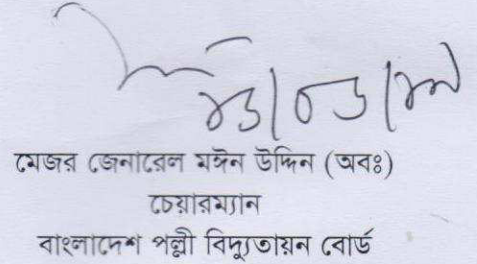 মেজর জেনারেল মঈন উদ্দিন (অবঃ)
চেয়ারম্যান
বাংলাদেশ পল্লী বিদ্যুতায়ন বোর্ড